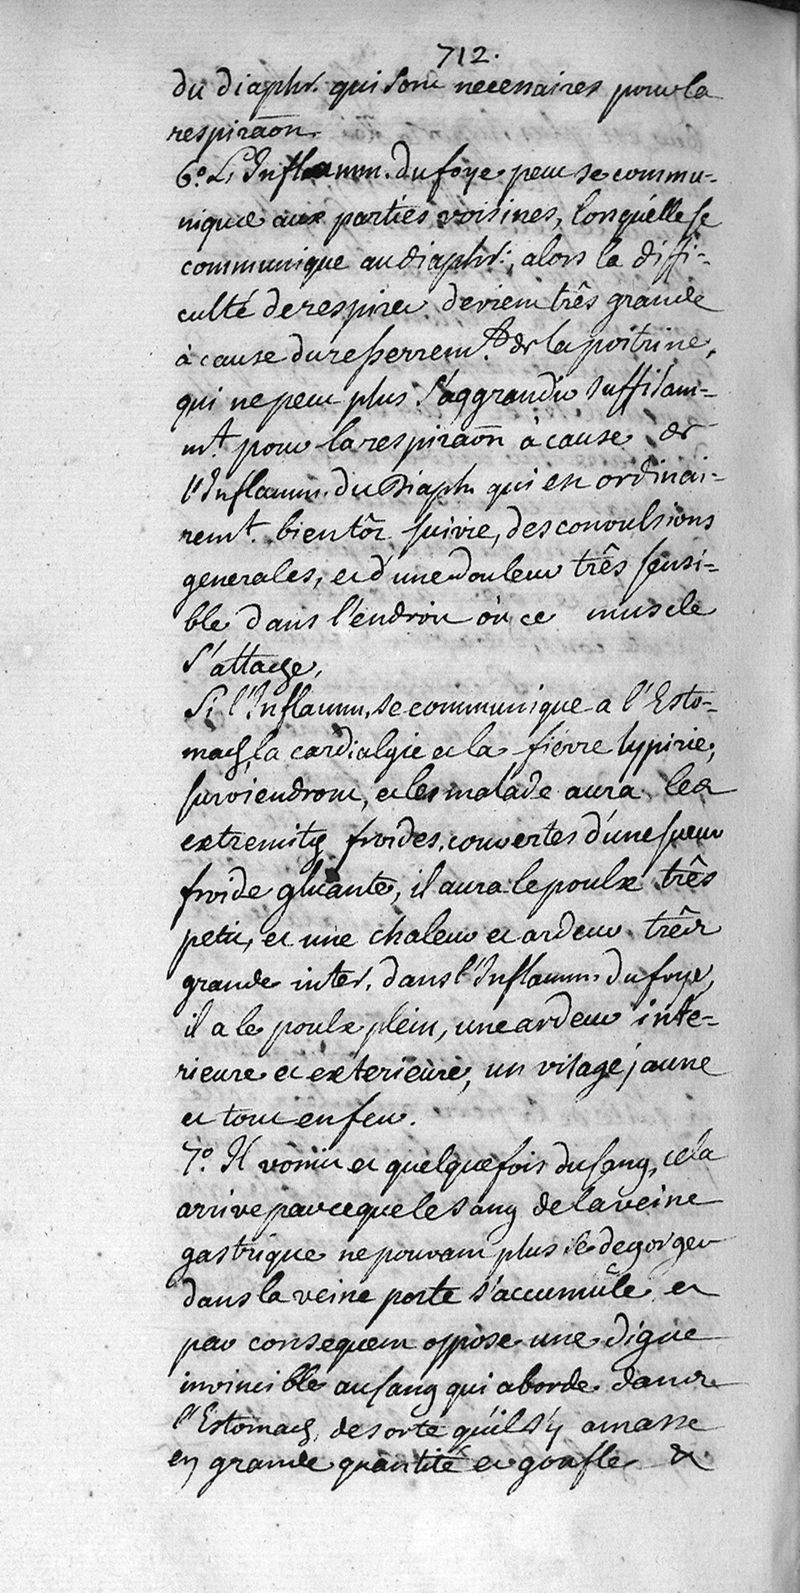 712.
du diaphr. qui sont necessaires pour la
respiraōn.
6.° L'Inflamm. du foye peut se commu-
niquer aux parties voisines, lorsqu'elle se
communique au diaphr., alors la diffi-
culté de respirer devient três grande
à cause du resserrem.t de la poitrine,
qui ne peut plus s'aggrandir suffisam-
m.t pour la respiraōn à cause de
l'Inflamm. du Diaph. qui est ordinai-
rem.t bientôt suivie, des convulsions
generales, et d'une douleur três sensi-
ble dans l'endroit où ce muscle
s'attache,
Si l'Inflamm. se communique a l'Esto-
mach, la cardialgie et la fiévre lypirie,
surviendront, et les malade aura les
extremités froides, couvertes d'une sueur
froide gluante, il aura le poulx três
petit, et une chaleur et ardeur três
grande inter. dans l'Inflamm. du foye,
il a le poulx plein, une ardeur inte-
rieure et exterieure, un visage jaune
et tout en feu.
7.° Il vomit et quelquefois du sang, cela
arrive parceque le sang de la veine
gastrique ne pouvant plus se degorger
dans la veine porte s'accumule et
par consequent oppose une digue
invincible au sang qui aborde dans
l'Estomach, de sorte qu'il s'y amasse
en grande quantité et gonfle &